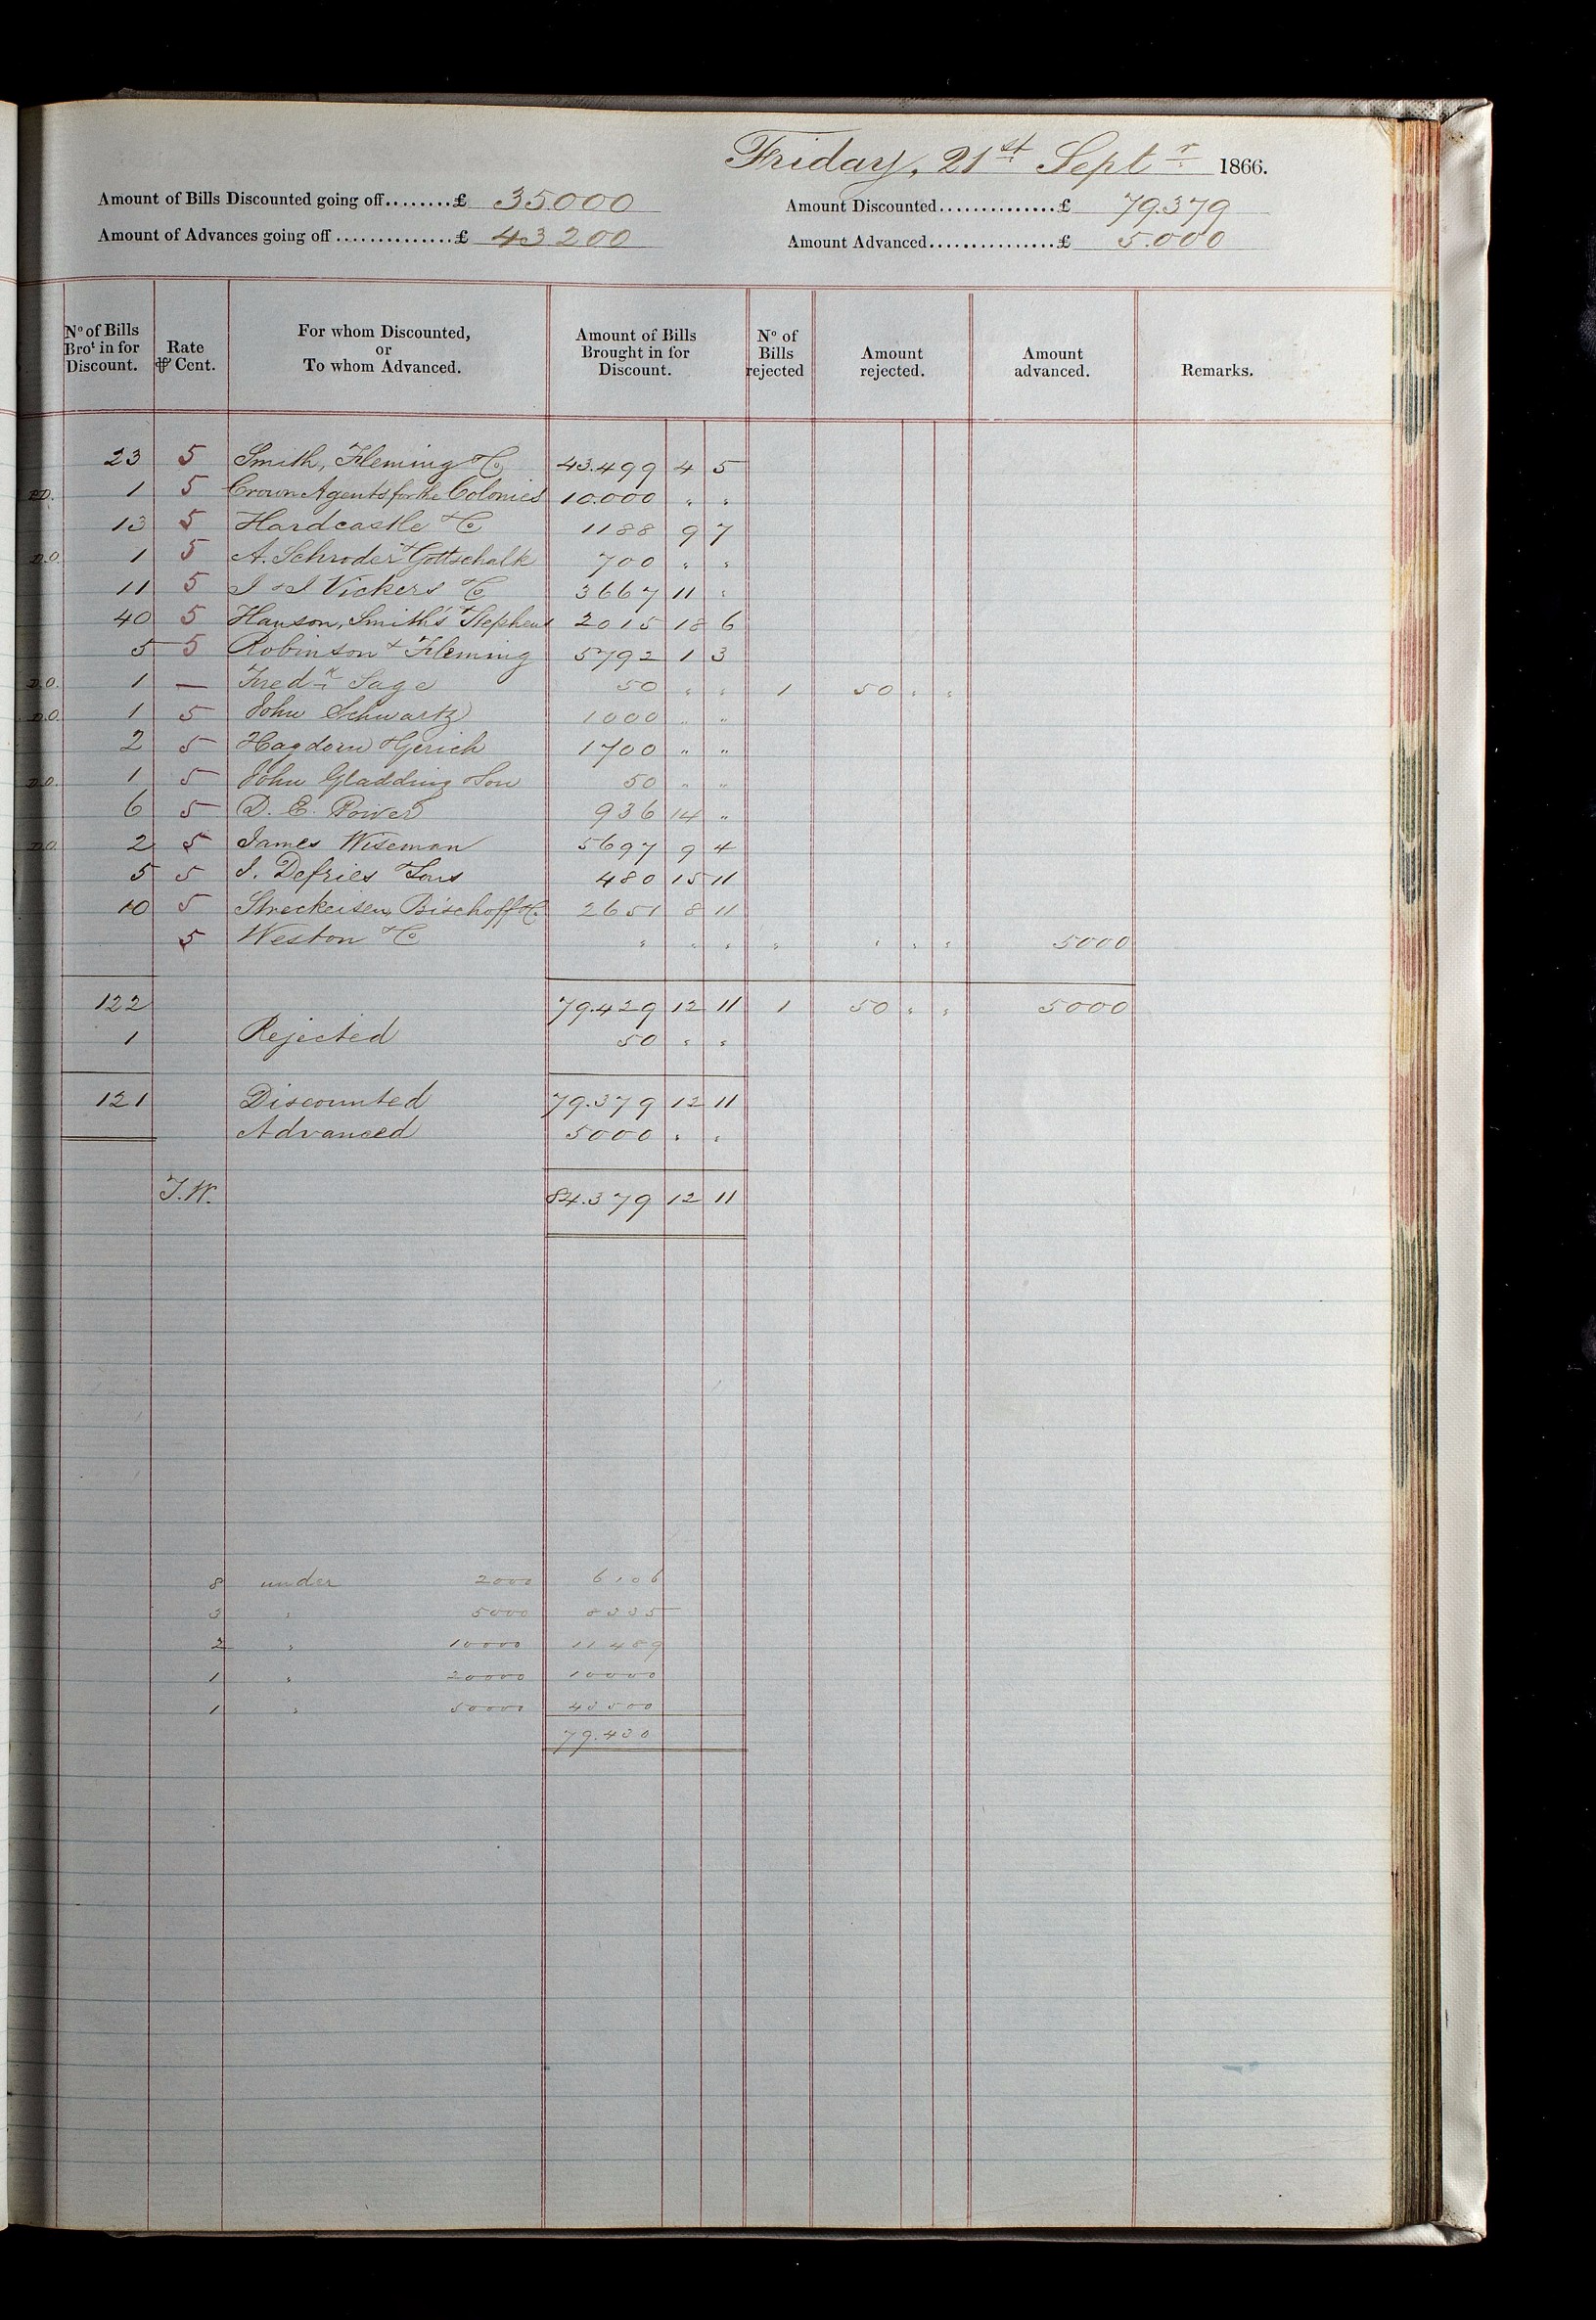 Friday, 21st Septr 1866.
Amount of Bills Discounted going off........£ 35000
Amount Discounted..............£ 79.379
Amount of Advances going off..............£ 43200
Amount Advanced...............£ 5.000
No of Bills Brot in for Discount. Rate ⅌ Cent. For whom Discounted, or To whom Advanced. Amount of Bills Brought in for Discount. No of Bills rejected Amount rejected. Amount advanced. Remarks.
23 5 Smith, Fleming & Co 43.499 4 5
1 5 Crown Agents for the Colonies 10.000 " "
13 5 Hardcastle & Co 1188 9 7
D.O. 1 5 A. Schroder & Gottschalk 700 " "
11 5 I & I Vickers & Co 3667 11 "
40 5 Hanson, Smith's & Stephens 2015 18 6
5 5 Robinson & Fleming 5792 1 3
D.O. 1 — Fredk Sage 50 " " 1 50 " "
D.O. 1 5 John Schwartz 1000 " "
2 5 Hagdorn & Gerich 1700 " "
D.O. 1 5 John Gladding & Son 50 " "
6 5 D. E. Power 936 14 "
D.O. 2 5 James Wiseman 5697 9 4
5 5 I. Defries & Sons 480 15 11
10 5 Streckeisen, Bischoff & Co 2651 8 11
5 Weston & Co " " " " " " " 5000
122 79.429 12 11 1 50 " " 5000
1 Rejected 50 " "
121 Discounted 79.379 12 11
Advanced 5000 " "
J.W. 84.379 12 11
8 under 2000 6106
3 " 5000 8335
2 " 10000 11489
1 " 20000 10000
1 " 50000 43500
79.430